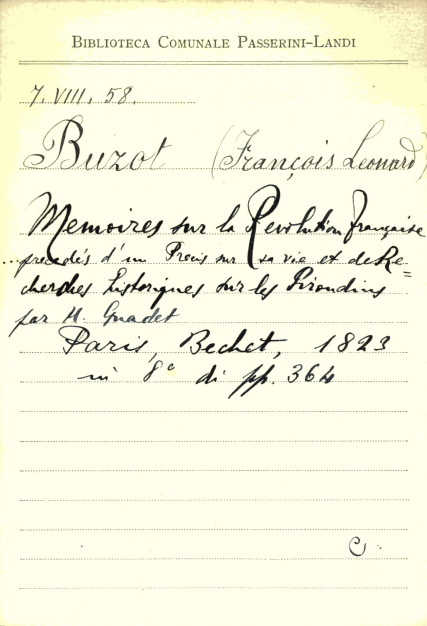 BIBLIOTECA COMUNALE PASSERINI-LANDI
7. VIII. 58.
Buzot (François Leonard)
Memoires sur la Revolution française
...precedés d'un Precis sur sa vie et de Re=
cherches historiques sur les Girondins
par M. Guadet
Paris, Bechet, 1823
in 8º di pp. 364
C.